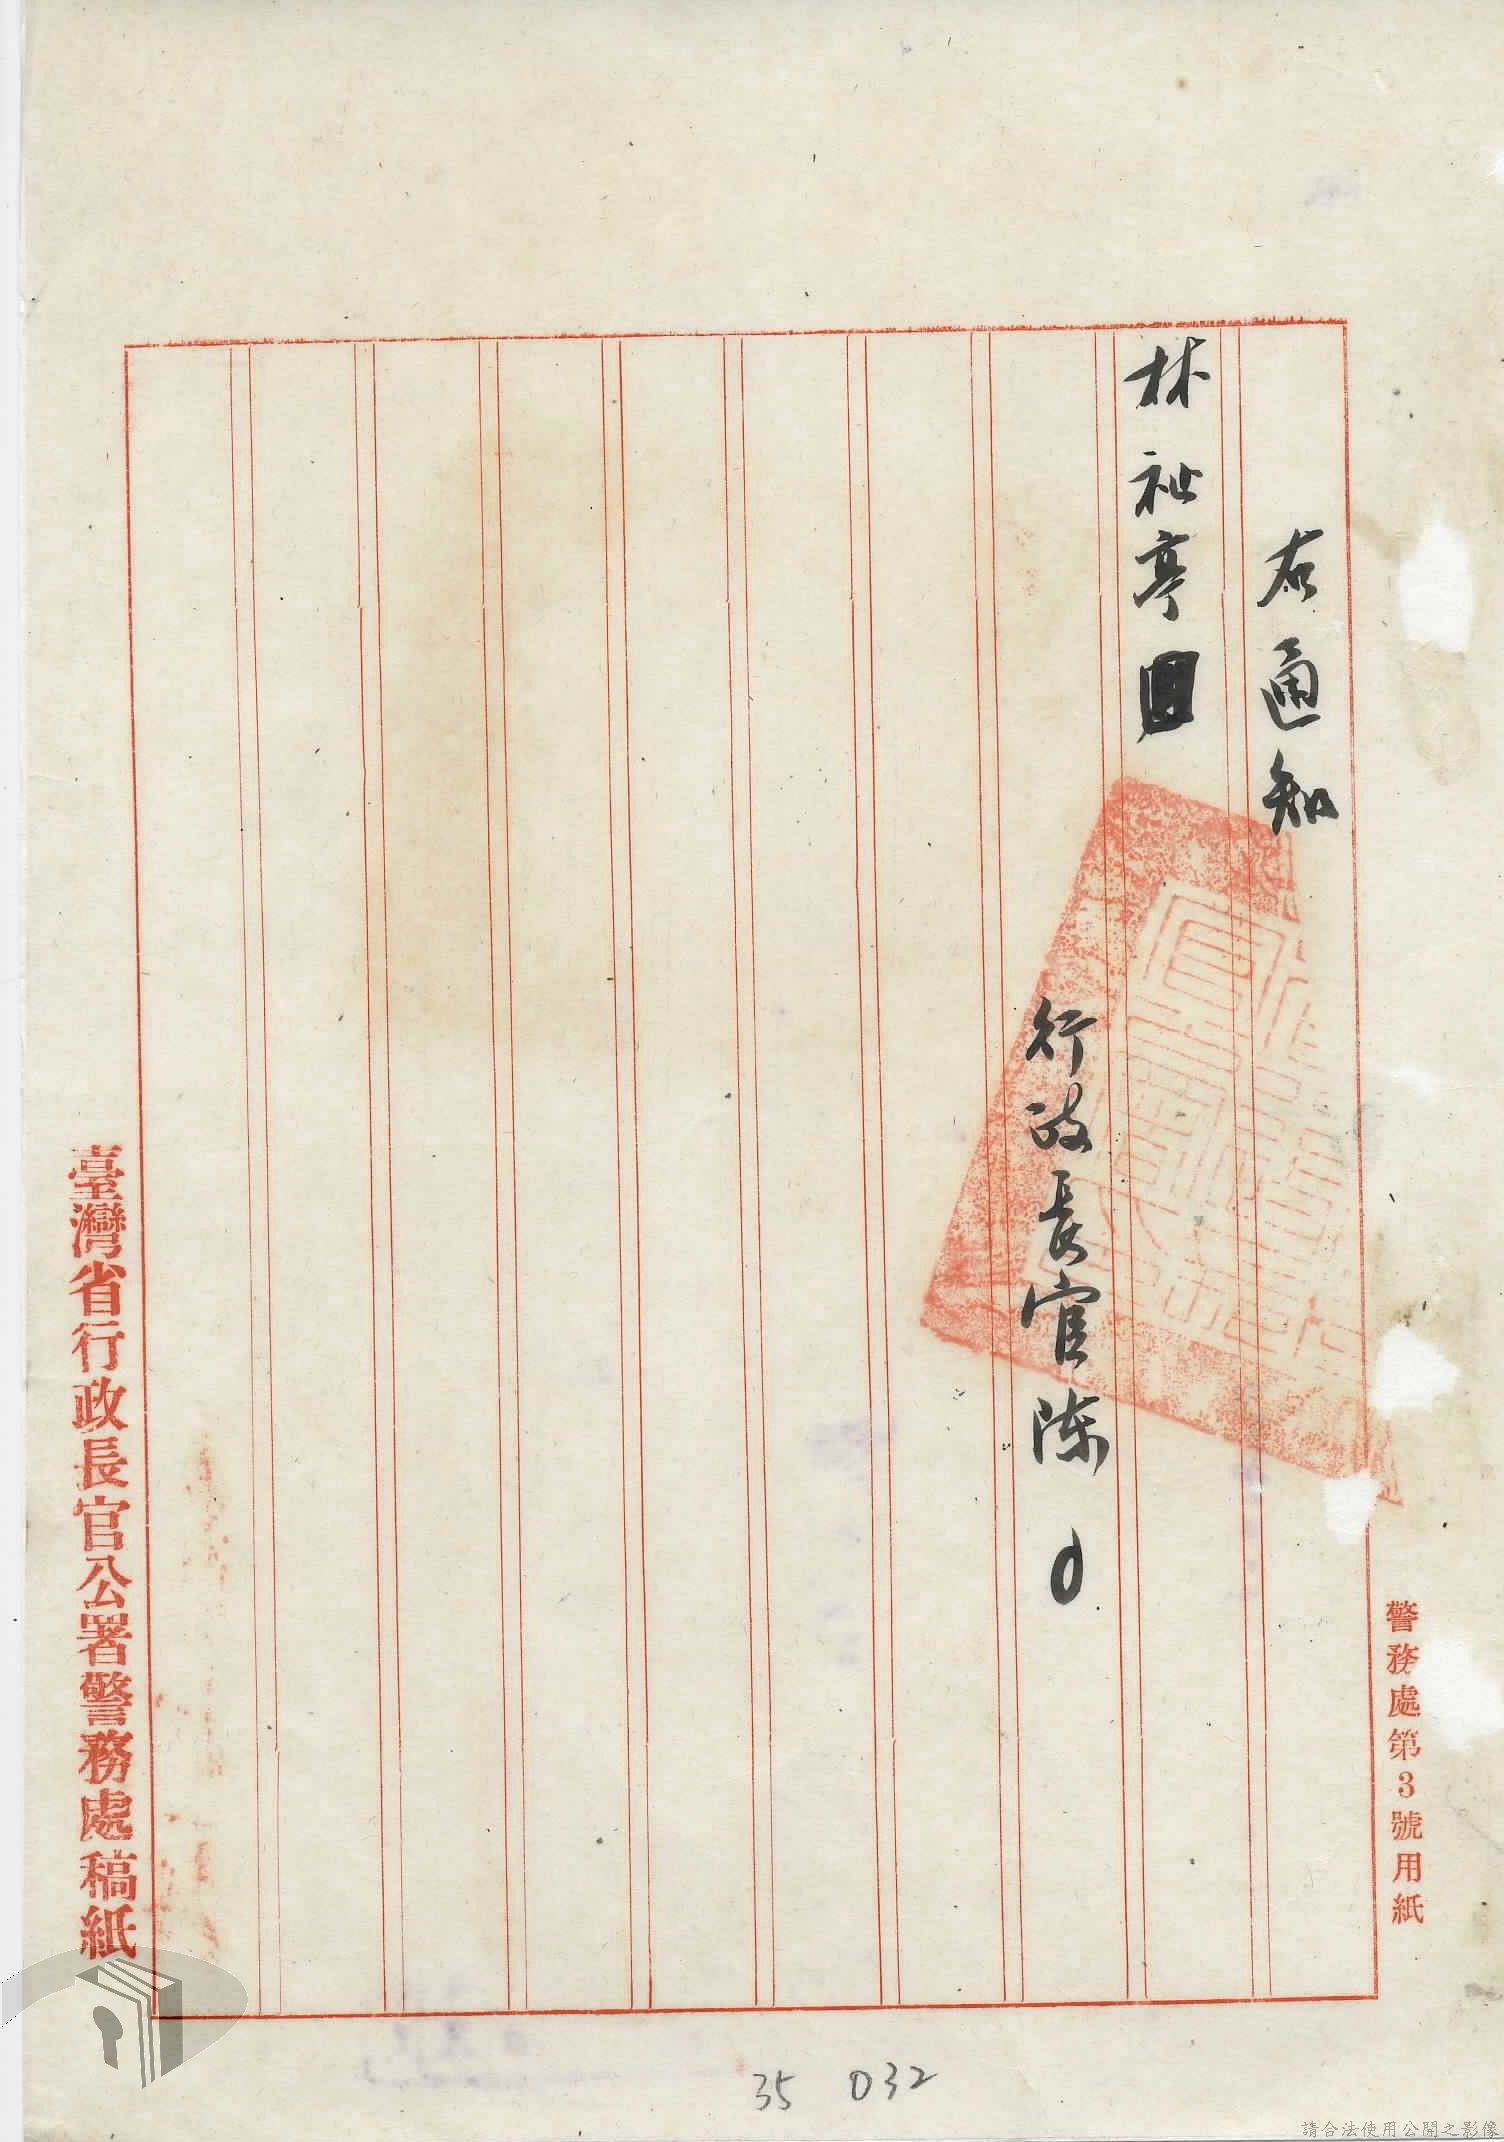 警務處第3號用紙
右通知
林祉亭
行政長官陳
臺灣省行政長官公署警務處稿紙
35 032
請合法使用公開之影像